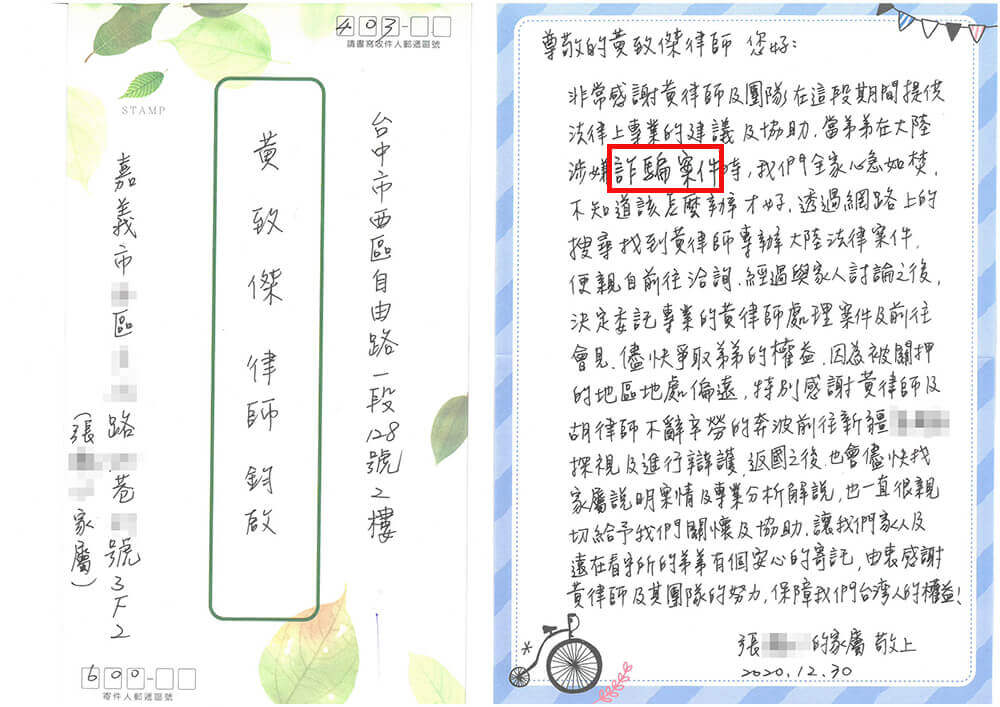 403-
請書寫收件人郵遞區號
STAMP
台中市西區自由路一段128號2樓
黃致傑 律師 鈞啟
嘉義市 區 路 巷 號3F2
(張 家屬)
600-
寄件人郵遞區號
尊敬的黃致傑律師 您好:
非常感謝黃律師及團隊在這段期間提供
法律上專業的建議及協助。當弟弟在大陸
涉嫌詐騙案件時,我們全家心急如焚,
不知道該怎麼辦才好。透過網路上的
搜尋找到黃律師專辦大陸法律案件,
便親自前往洽詢。經過與家人討論之後,
決定委託專業的黃律師處理案件及前往
會見。儘快爭取弟弟的權益。因為被關押
的地區地處偏遠,特別感謝黃律師及
胡律師不辭辛勞的奔波前往新疆
探視及進行辯護。返國之後,也會儘快找
家屬說明案情及專業分析解說,也一直很親
切給予我們關懷及協助。讓我們家人及
遠在看守所的弟弟有個安心的寄託,由衷感謝
黃律師及其團隊的努力,保障我們台灣人的權益!
張 的家屬 敬上
2020.12.30